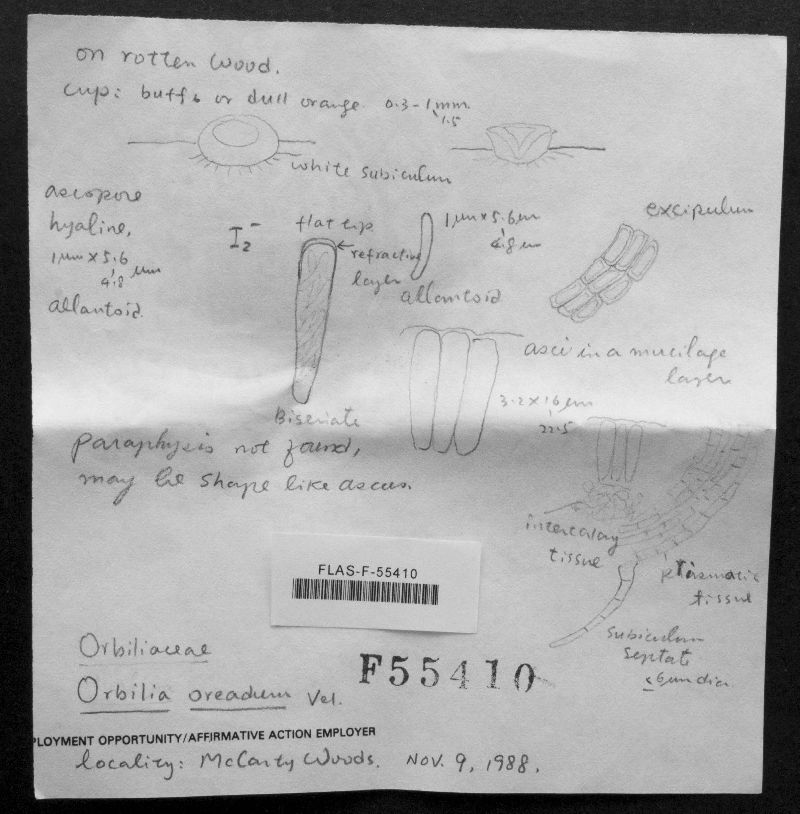 on rotten wood.
cup: buff, or dull orange. 0.3-1 mm.
1.5
white subiculum
ascopore
hyaline,
1 µm x 5.6
4.8 µm
allantoid.
I2-
flat tip
refractive
layer
1 µm x 5.6 µm
4.8 µm
allantoid
excipulum
asci in a mucilage
layer
3.2 x 16 µm
22.5
Biseriate
paraphysis not found,
may be shape like ascus.
intercalary
tissue
prismatic
tissue
subiculum
septate
6 µm dia.
FLAS-F-55410
Orbiliaceae
Orbilia oreadum Vel.
F55410
PLOYMENT OPPORTUNITY/AFFIRMATIVE ACTION EMPLOYER
locality: McCarty Woods. Nov. 9, 1988.